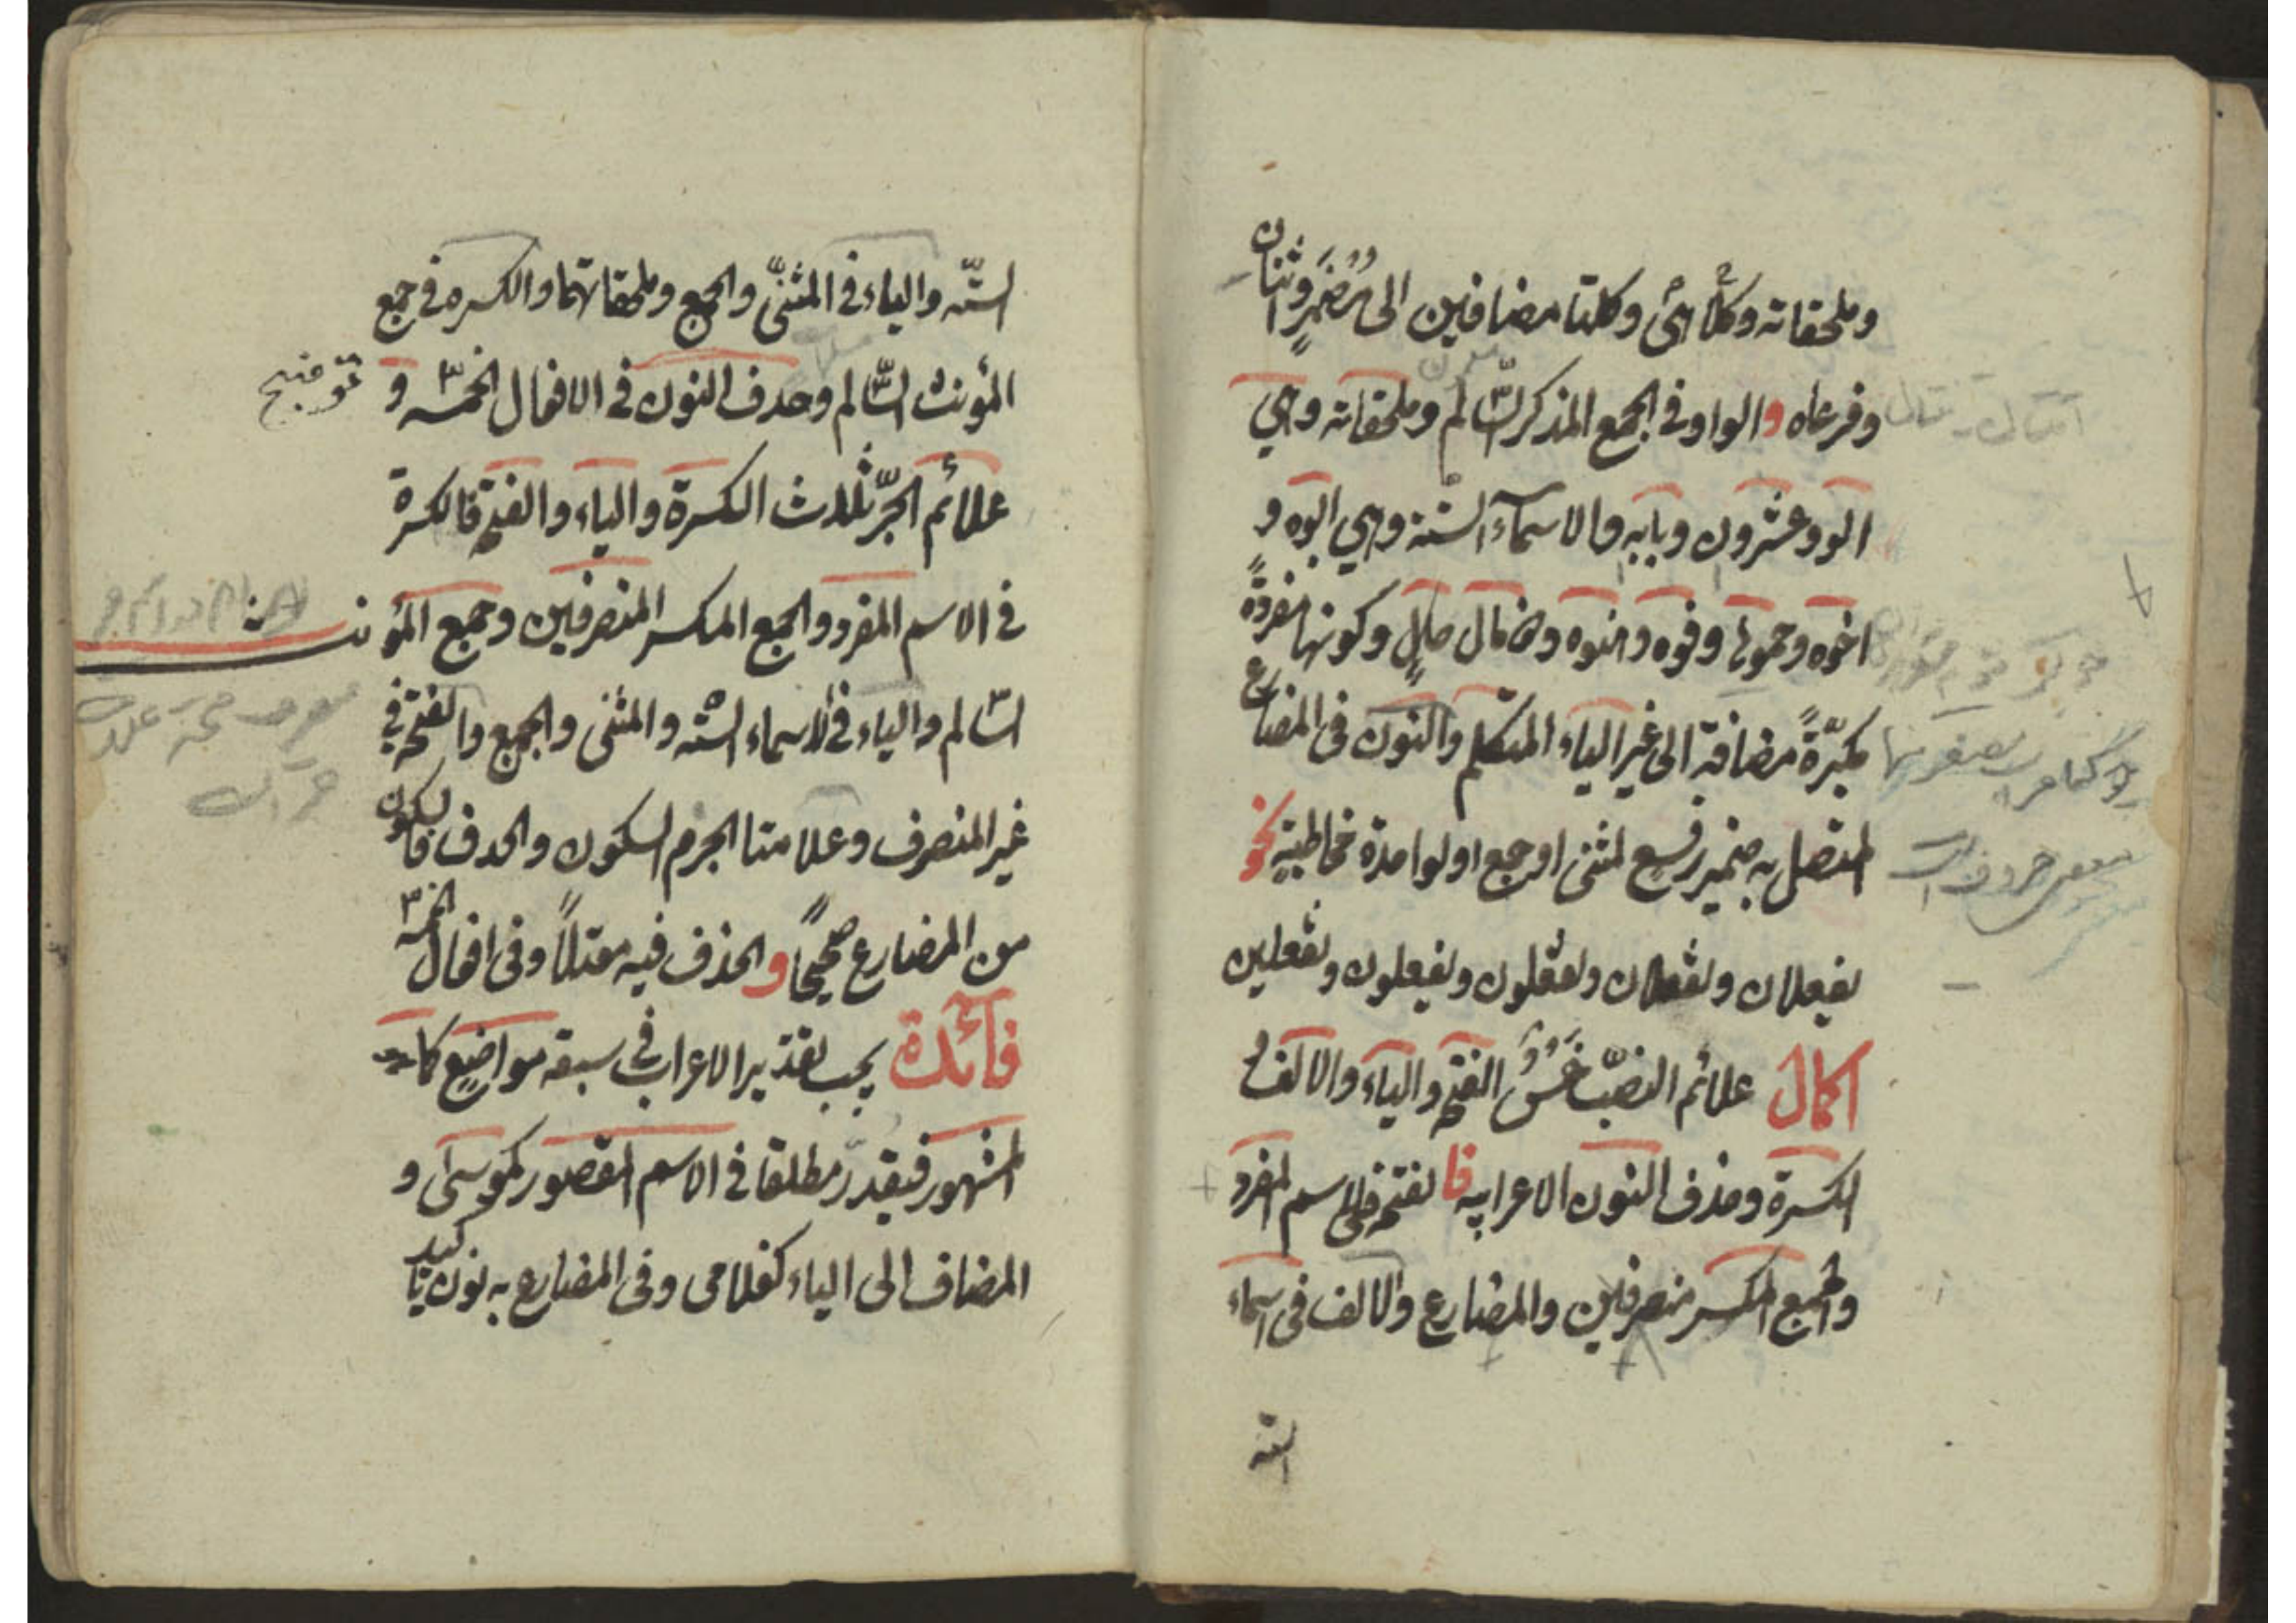 وملحقاته وكلا اى وكلتا مضافين الى مُضمَرٍ واثنان
وفرعاه والواو فى الجمع المذكر السّالم وملحقاته وهي
الو وعشرون وبابه والاسمآء الستة وهي ابوه و
اخوه وحموها وفوه وهنوه وذو مال وكونها مفردةً
مكبّرةً مضافة الى غير الياء المتكلم والنون فى المضارع
المتصل به ضمير رفع لمثنى او جمع او لواحدة مخاطبةٍ نحو
يفعلان وتفعلان وتفعلون ويفعلون وتفعلين
اكمال علائم النصب خَمْسٌ الفتحه والياء والالف و
الكسرة وحذف النون الاعرابيه فالفتحه فى الاسم المفرد
والجمع المكسر منصرفين والمضارع والالف فى اسماء
الستّه
الستّه والياء فى المثنىّ والجمع وملحقاتهما والكسره فى جمع
المؤنث السّالم وحدف النون فى الافعال الخمسّه و
توضيح
علائم الجرّ ثلاث الكسرة والياء والفتحه فالكسرة
فى الاسم المفرد والجمع المكسر المنصرفين وجمع المؤنث
السّالم والياء فى الاسماء الستّه والمثنى والجمع والفتحه فى
غير المنصرف وعلامتا الجزم السكون والحدف فالسكون
من المضارع صحيحًا والحذف فيه معتلاً وفى افعال الخمسّه
فآئدة يجب تقدير الاعراب فى سبعه مواضيع كما هو
المشهور فيقدّر مطلقا فى الاسم المقصور كموسى و
المضاف الى الياء كغلامى وفى المضارع به نون تاكيد